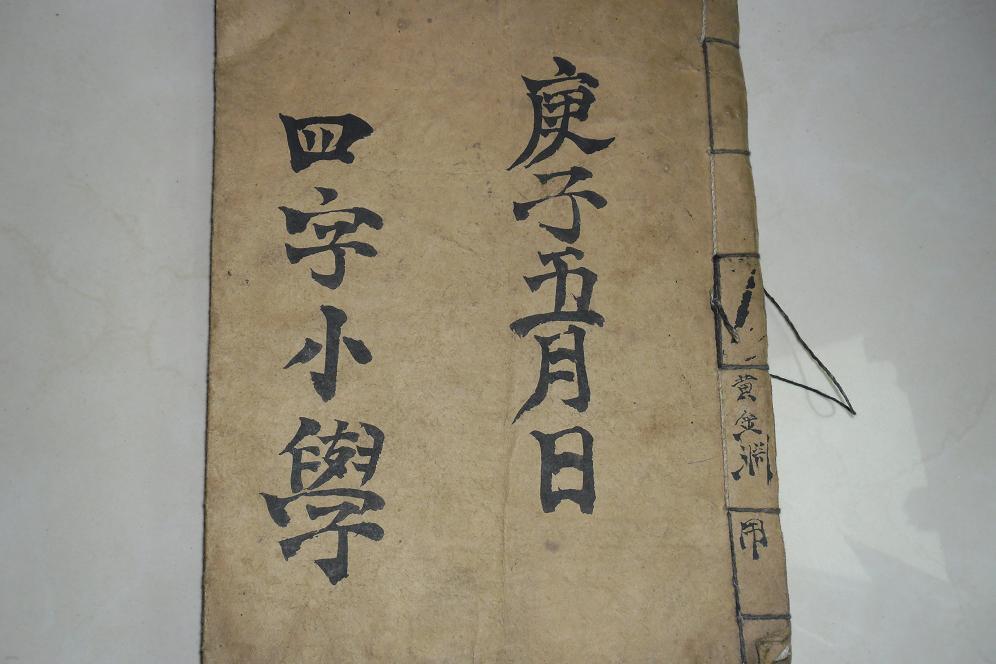 庚子五月日
四字小學
黄金淵
用